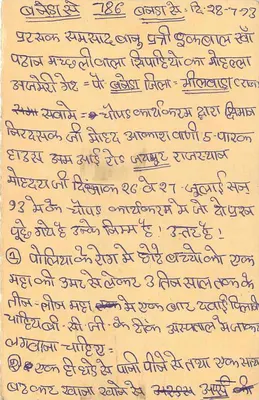 बनेडा से 786 बनेडा से - दि. 28-7-93
प्रेसक समसाद बानु पुत्री इकबाल खाँ
पठान मछली वाला सिपाहियो का मोहल्ला
अजमेरी गेट = पो- बनेडा जिला = भीलवाडा
सेवामे = चोपड कार्यकरम द्वारा श्रिमान
निरदेसक जी महोद आकाशवाणी 5- पारक
हाउस अम आई रोड जयपुर राजस्थान
महोदय जी दिनांक 26 व 27 - जुलाई सन
93 मे के चोपड कार्यकरम मे जो दो प्रश्न
पूछे गये है उनके निम्म है। उत्तर है।
① पोलियो के रोग से छोटे बच्चो को एक
महा की उमर से लेकर 3 तीन साल तक के
तीन - तीन महा मे एक बार दवाई पिलानी
चाहिए बी - सी - जी - के टीके अस्पताल मे जाकर
लगवाना चाहिए =
② एक ही घडे से पानी पीने से तथा एक साथ
बेटकर खाना खाने से